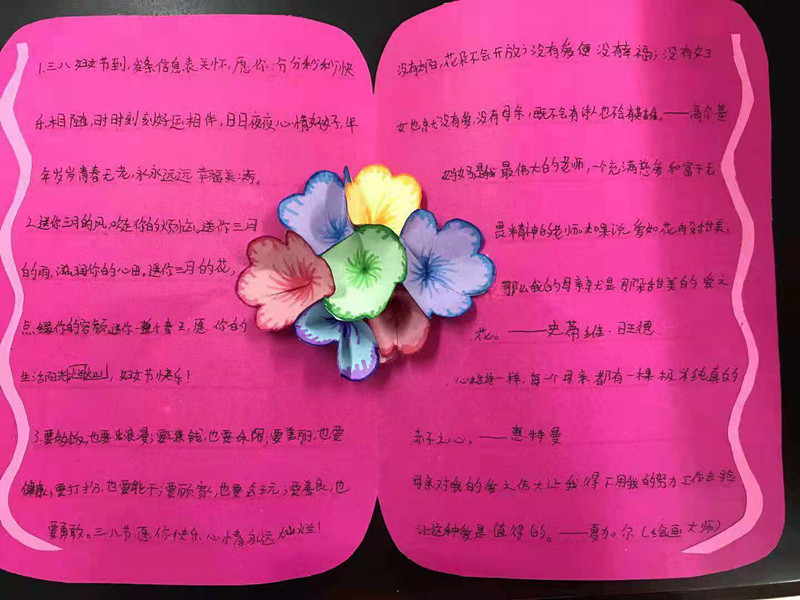 1.三八妇女节到,发条信息表关怀,愿你:分分秒秒快
乐相随,时时刻刻好运相伴,日日夜夜心情好,年
年岁岁青春无老,永永远远幸福美满。
2.送你三月的风,吹走你的烦恼。送你三月
的雨,滋润你的心田。送你三月的花,
点缀你的容颜。送你一整个春天,愿你的
生活阳光灿烂,妇女节快乐!
3.要,也要浪漫;要,也要休闲;要美丽,也要
健康;要打扮,也要能干;要顾家,也要;要善良,也
要勇敢。三八节愿你快乐,心情永远灿烂!
没有太阳,花朵不会开放;没有爱便没有幸福;没有妇
女也就没有爱,没有母亲,既不会有诗人也不会有英雄。——高尔基
妈妈是我最伟大的老师,一个充满慈爱和富于无
畏精神的老师。如果说爱如花般甜美,
那么我的母亲就是那朵甜美的爱之
花。——史蒂维·旺德
心一样,每一个母亲都有一棵极为纯真的
赤子之心。——惠特曼
母亲对我的爱之伟大让我得用我的努力工作去验
证这种爱是值得的。——夏加尔(绘画大师)